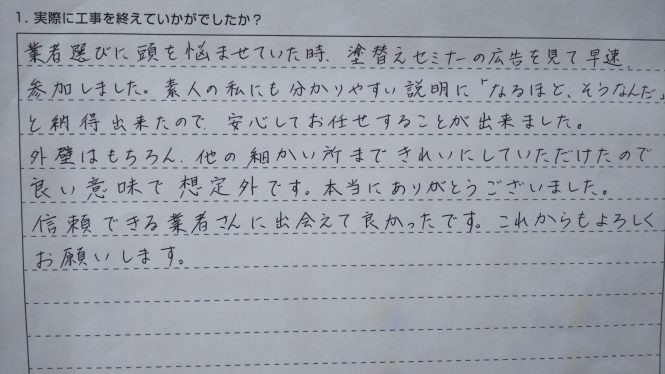 1. 実際に工事を終えていかがでしたか？
業者選びに頭を悩ませていた時、塗替えセミナーの広告を見て早速、
参加しました。素人の私にも分かりやすい説明に「なるほど、そうなんだ」
と納得出来たので、安心してお任せすることが出来ました。
外壁はもちろん、他の細かい所まできれいにしていただけたので
良い意味で想定外です。本当にありがとうございました。
信頼できる業者さんに出会えて良かったです。これからもよろしく
お願いします。